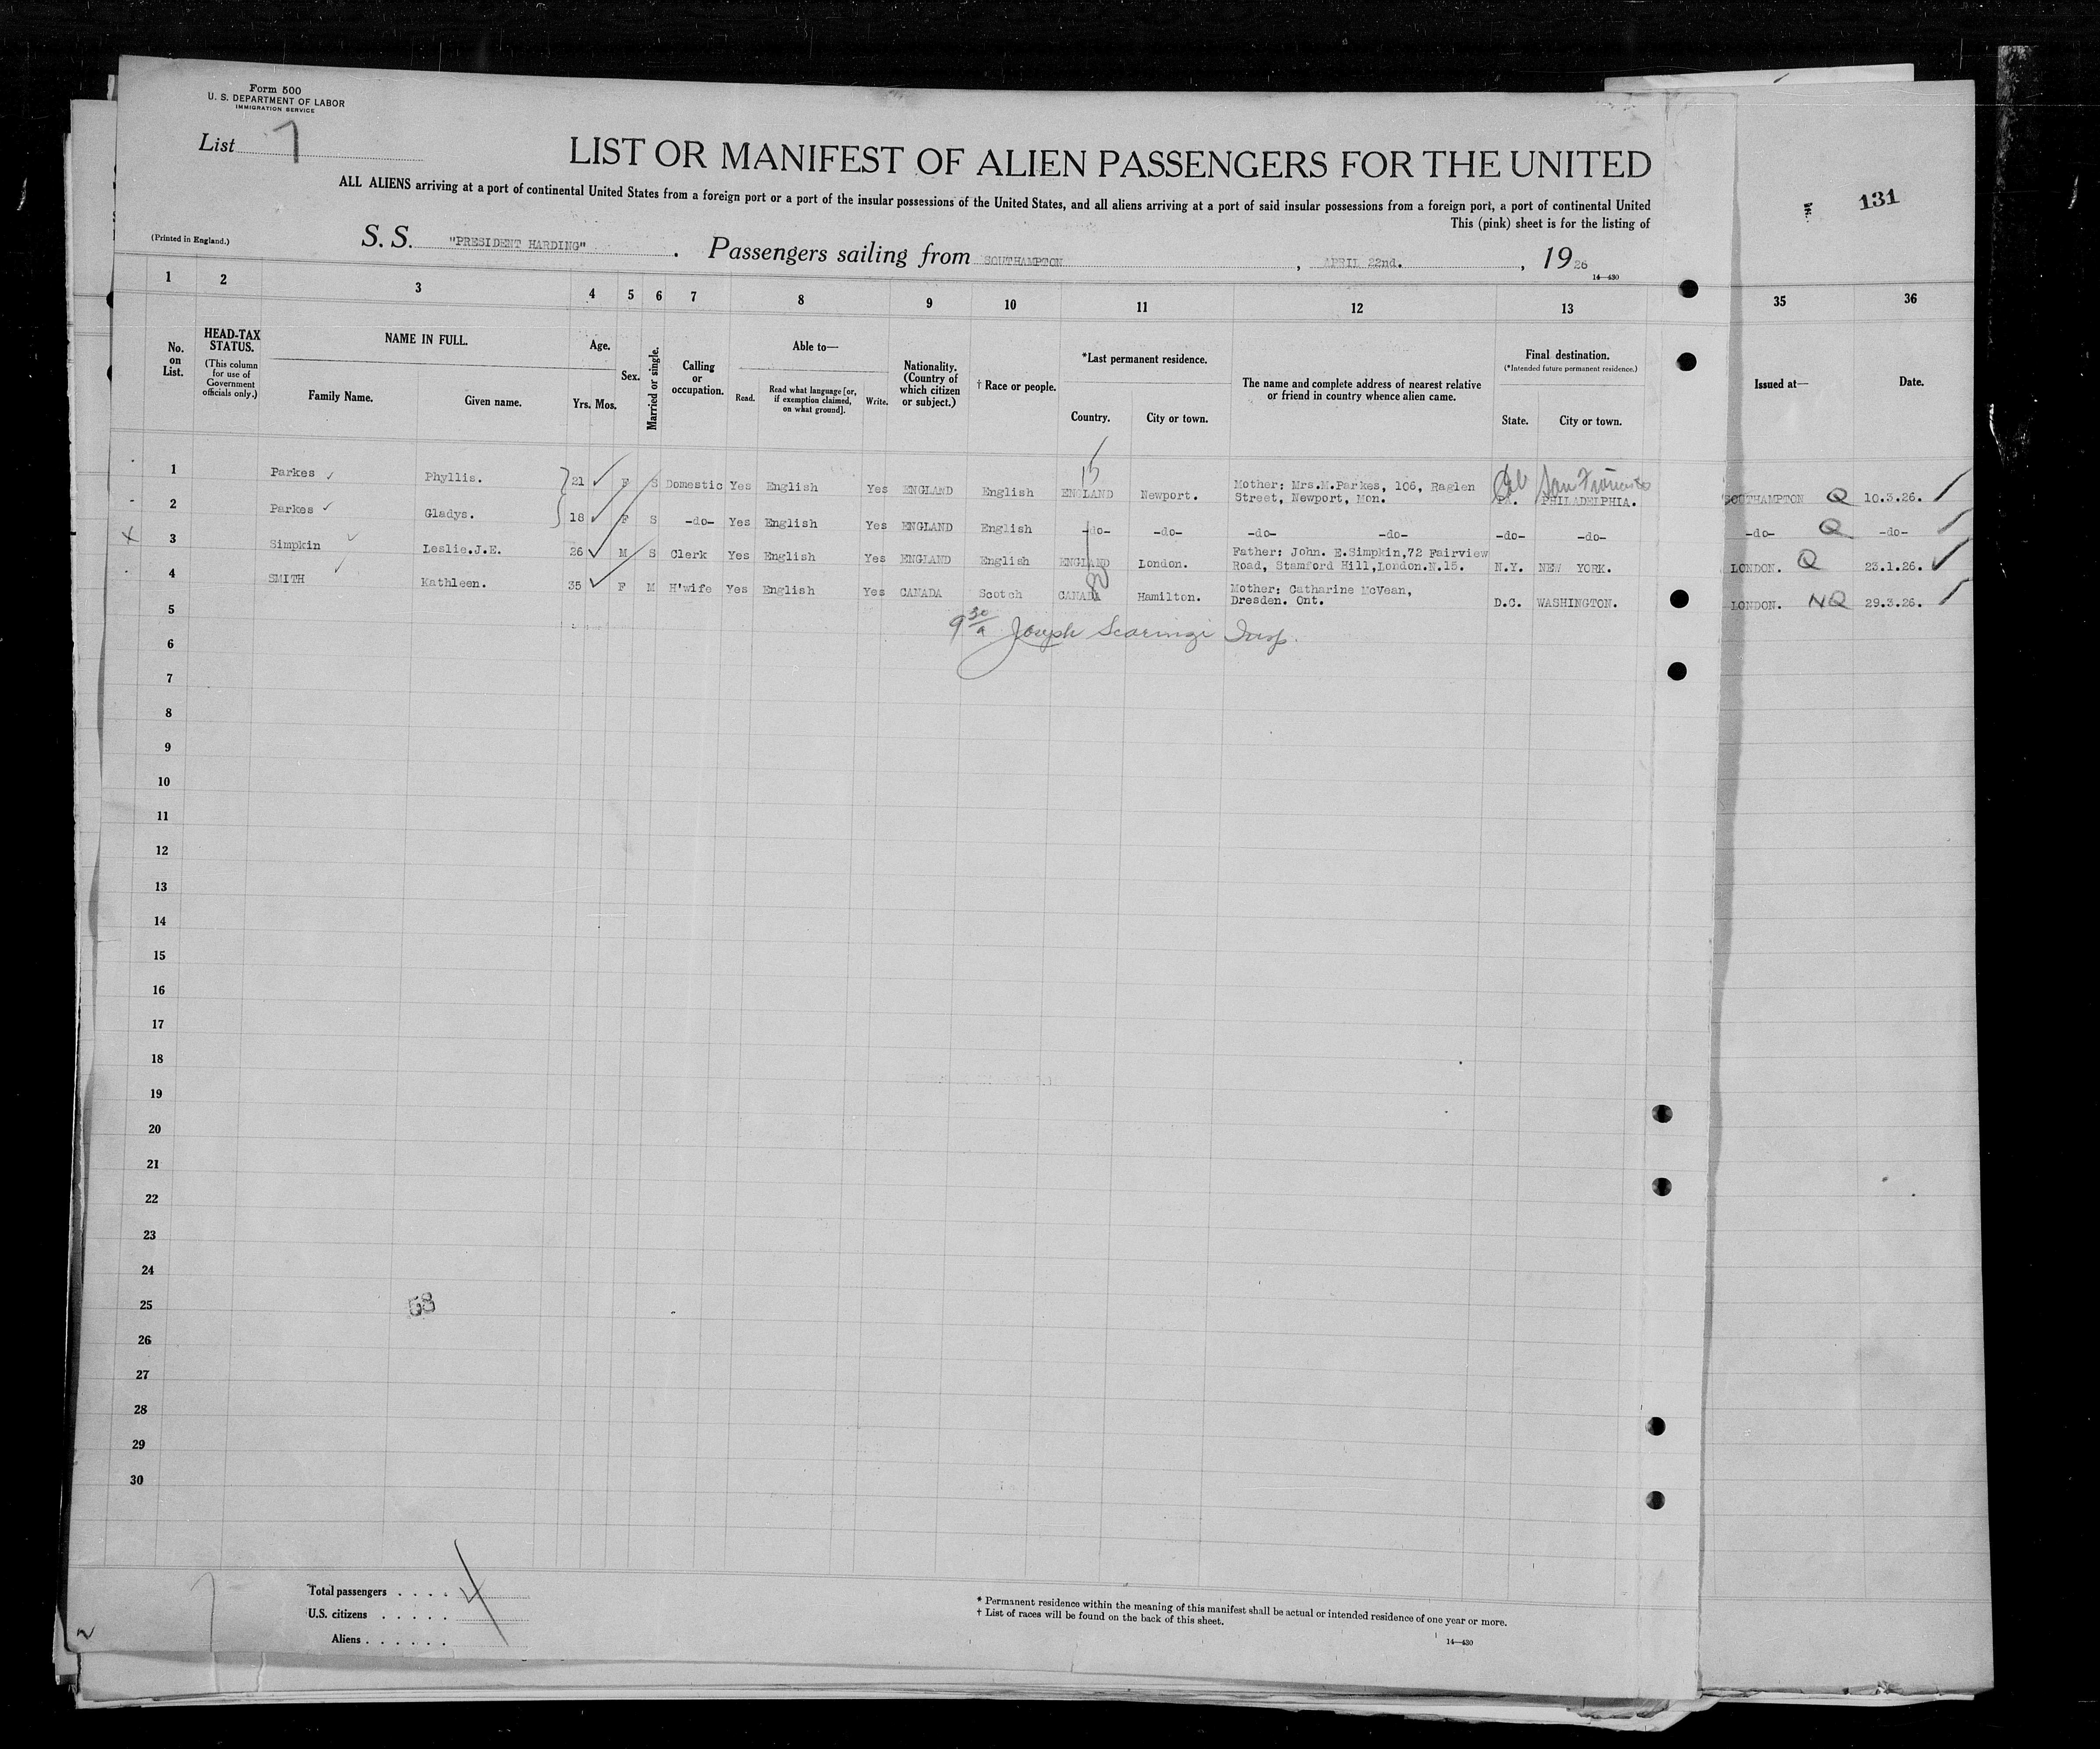 Form 500
U. S. DEPARTMENT OF LABOR
IMMIGRATION SERVICE
List 7
LIST OR MANIFEST OF ALIEN PASSENGERS FOR THE UNITED
ALL ALIENS arriving at a port of continental United States from a foreign port or a port of the insular possessions of the United States, and all aliens arriving at a port of said insular possessions from a foreign port, a port of continental United
This (pink) sheet is for the listing of
131
(Printed in England.)
S. S. "PRESIDENT HARDING" . Passengers sailing from SOUTHAMPTON , APRIL 22nd. , 1926
14—430
1 2 3 4 5 6 7 8 9 10 11 12 13 35 36
No. on List.
HEAD-TAX STATUS.
(This column for use of Government officials only.)
NAME IN FULL.
Family Name. Given name.
Age.
Yrs. Mos.
Sex.
Married or single.
Calling or occupation.
Able to—
Read. Read what language [or, if exemption claimed, on what ground]. Write.
Nationality. (Country of which citizen or subject.)
† Race or people.
*Last permanent residence.
Country. City or town.
The name and complete address of nearest relative or friend in country whence alien came.
Final destination.
(*Intended future permanent residence.)
State. City or town.
Issued at— Date.
15
Cal San Francisco
1 Parkes Phyllis. 21 F S Domestic Yes English Yes ENGLAND English ENGLAND Newport. Mother: Mrs.M.Parkes, 106, Raglen Street, Newport, Mon. PA. PHILADELPHIA. SOUTHAMPTON Q 10.3.26.
2 Parkes Gladys. 18 F S -do- Yes English Yes ENGLAND English -do- -do- -do- -do- -do- -do- -do- Q -do-
3 Simpkin Leslie.J.E. 26 M S Clerk Yes English Yes ENGLAND English ENGLAND London. Father: John. E.Simpkin,72 Fairview Road, Stamford Hill,London.N.15. N.Y. NEW YORK. LONDON. Q 23.1.26.
4 SMITH Kathleen. 35 F M H'wife Yes English Yes CANADA Scotch CANADA Hamilton. Mother: Catharine McVean, Dresden. Ont. D.C. WASHINGTON. LONDON. NQ 29.3.26.
5
9 30/a Joseph Scaringi Insp.
6
7
8
9
10
11
12
13
14
15
16
17
18
19
20
21
22
23
24
25
58
26
27
28
29
30
Total passengers . . . . 4
U.S. citizens . . . . .
Aliens . . . . . .
* Permanent residence within the meaning of this manifest shall be actual or intended residence of one year or more.
† List of races will be found on the back of this sheet.
14—430